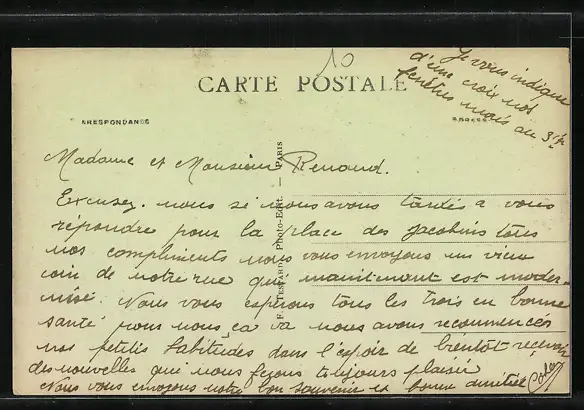 10
CARTE POSTALE
CORRESPONDANCE
ADRESSE
F. TESTARD, Photo-Edit. — PARIS
Je vous indique
d'une croix nos
fenêtres mais au 3e
Madame et Monsieur Renaud.
Excusez. nous si nous avons tardés a vous
répondre pour la place des Jacobins tous
nos compliments nous vous envoyons un vieux
coin de notre rue qui maintenant est moder-
nisé. Nous vous espérons tous les trois en bonne
santé pour nous ça va nous avons recommencés
nos petites habitudes dans l'espoir de bientôt reçevoir
des nouvelles qui nous feçons toujours plaisir
Nous vous envoyons notre bon souvenir et bonne amitié